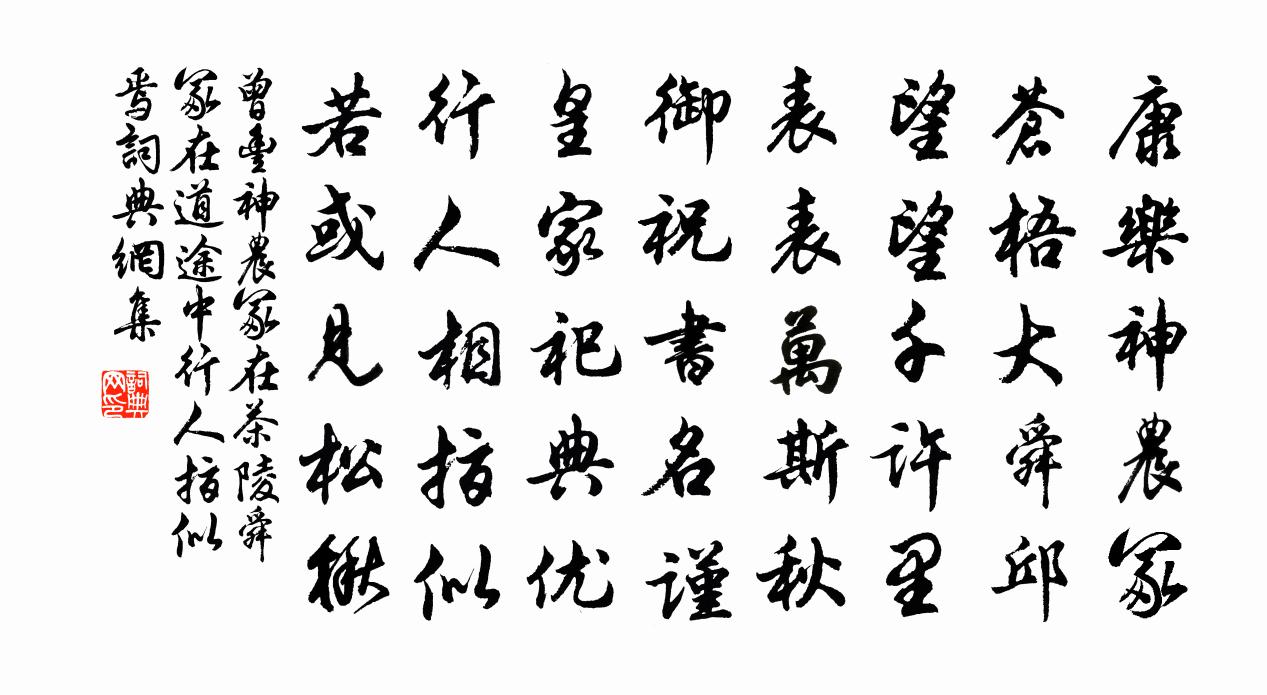 康樂神農冢
蒼梧大舜邱
望望千許里
表表萬斯秋
御祝書名謹
皇家祀典优
行人相指似
若或見松楸
曾豊神農冢在茶陵舜
冢在道途中行人指似
焉詞典網集
詞典
网印